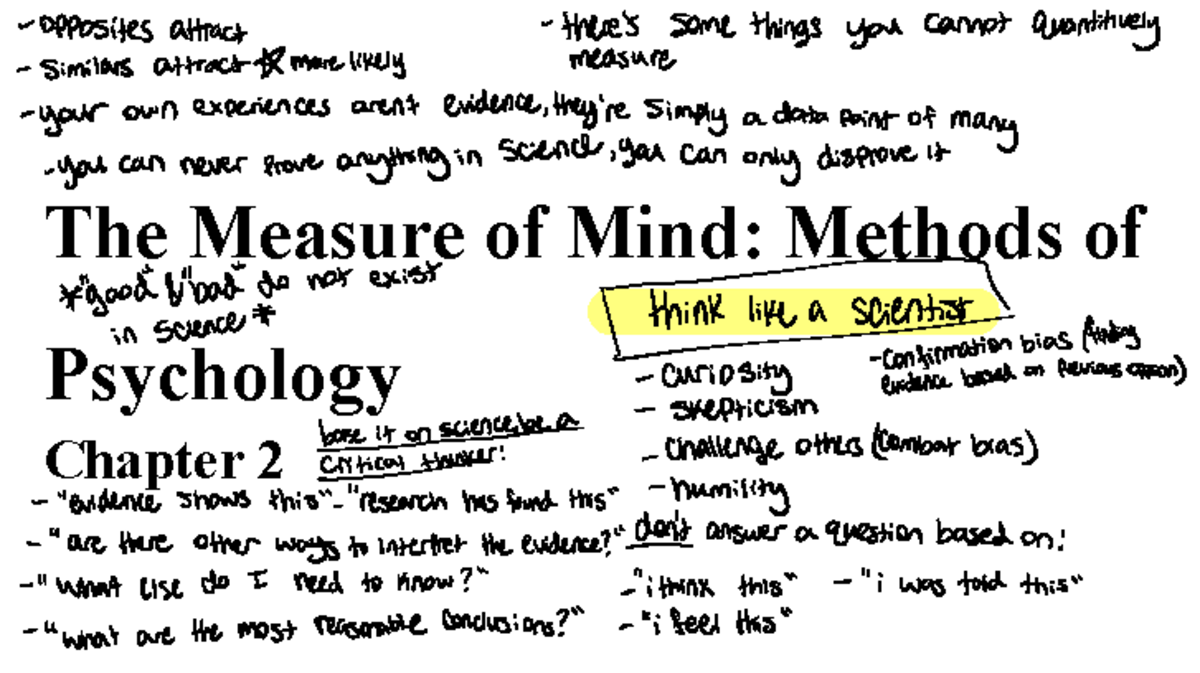 - opposites attract
- similars attract ☆ more likely
- there's some things you cannot quantitively
measure
- your own experiences arent evidence, they're simply a data point of many
- you can never prove anything in science, you can only disprove it
The Measure of Mind: Methods of
*"good" & "bad" do not exist
in science*
think like a scientist
Psychology
- curiosity
- skepticism
- challenge others (combat bias)
- humility
- confirmation bias (finding
evidence based on previous opinion)
Chapter 2
base it on science, be a
critical thinker!
- "evidence shows this" - "research has found this"
- "are there other ways to interpret the evidence?"
- "what else do I need to know?"
- "what are the most reasonable conclusions?"
don't answer a question based on:
- "i think this" - "i was told this"
- "i feel this"